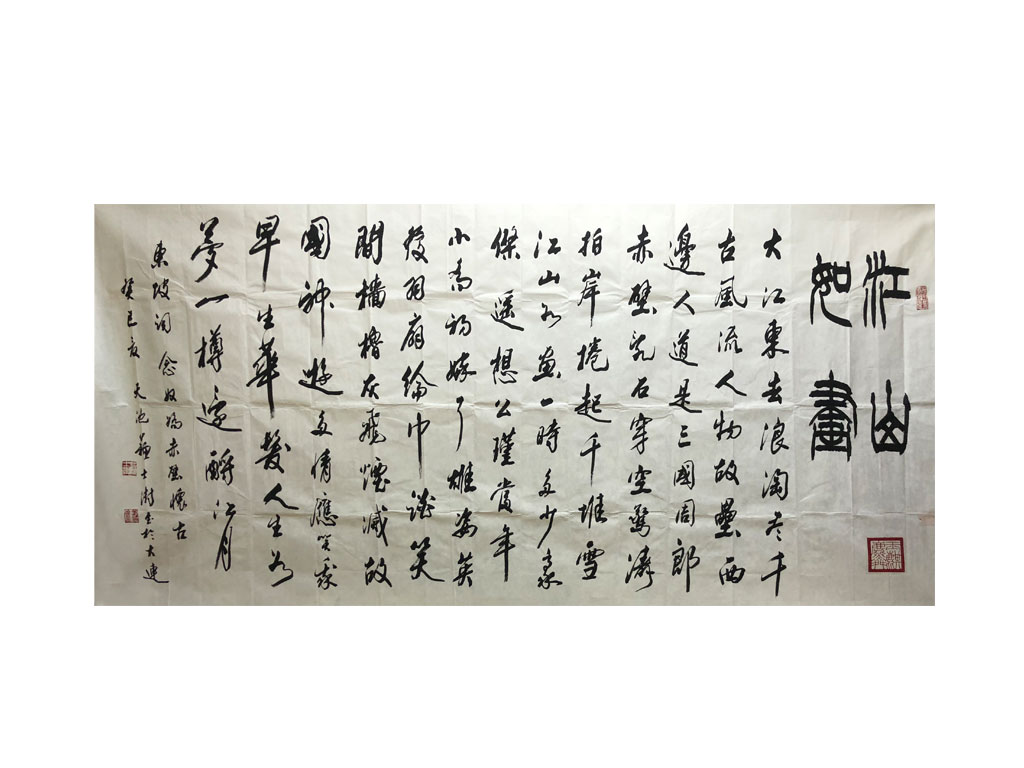 江山
如畫
大江東去浪淘尽千
古風流人物故壘西
邊人道是三國周郎
赤壁乱石穿空驚濤
拍岸捲起千堆雪
江山如画一時多少豪
傑遥想公瑾當年
小喬初嫁了雄姿英
發羽扇綸巾談笑
間檣櫓灰飛煙滅故
國神遊多情應笑我
早生華髮人生如
夢一樽還酹江月
東坡词念奴嬌赤壁懷古
癸巳夏天池士澍書於大連